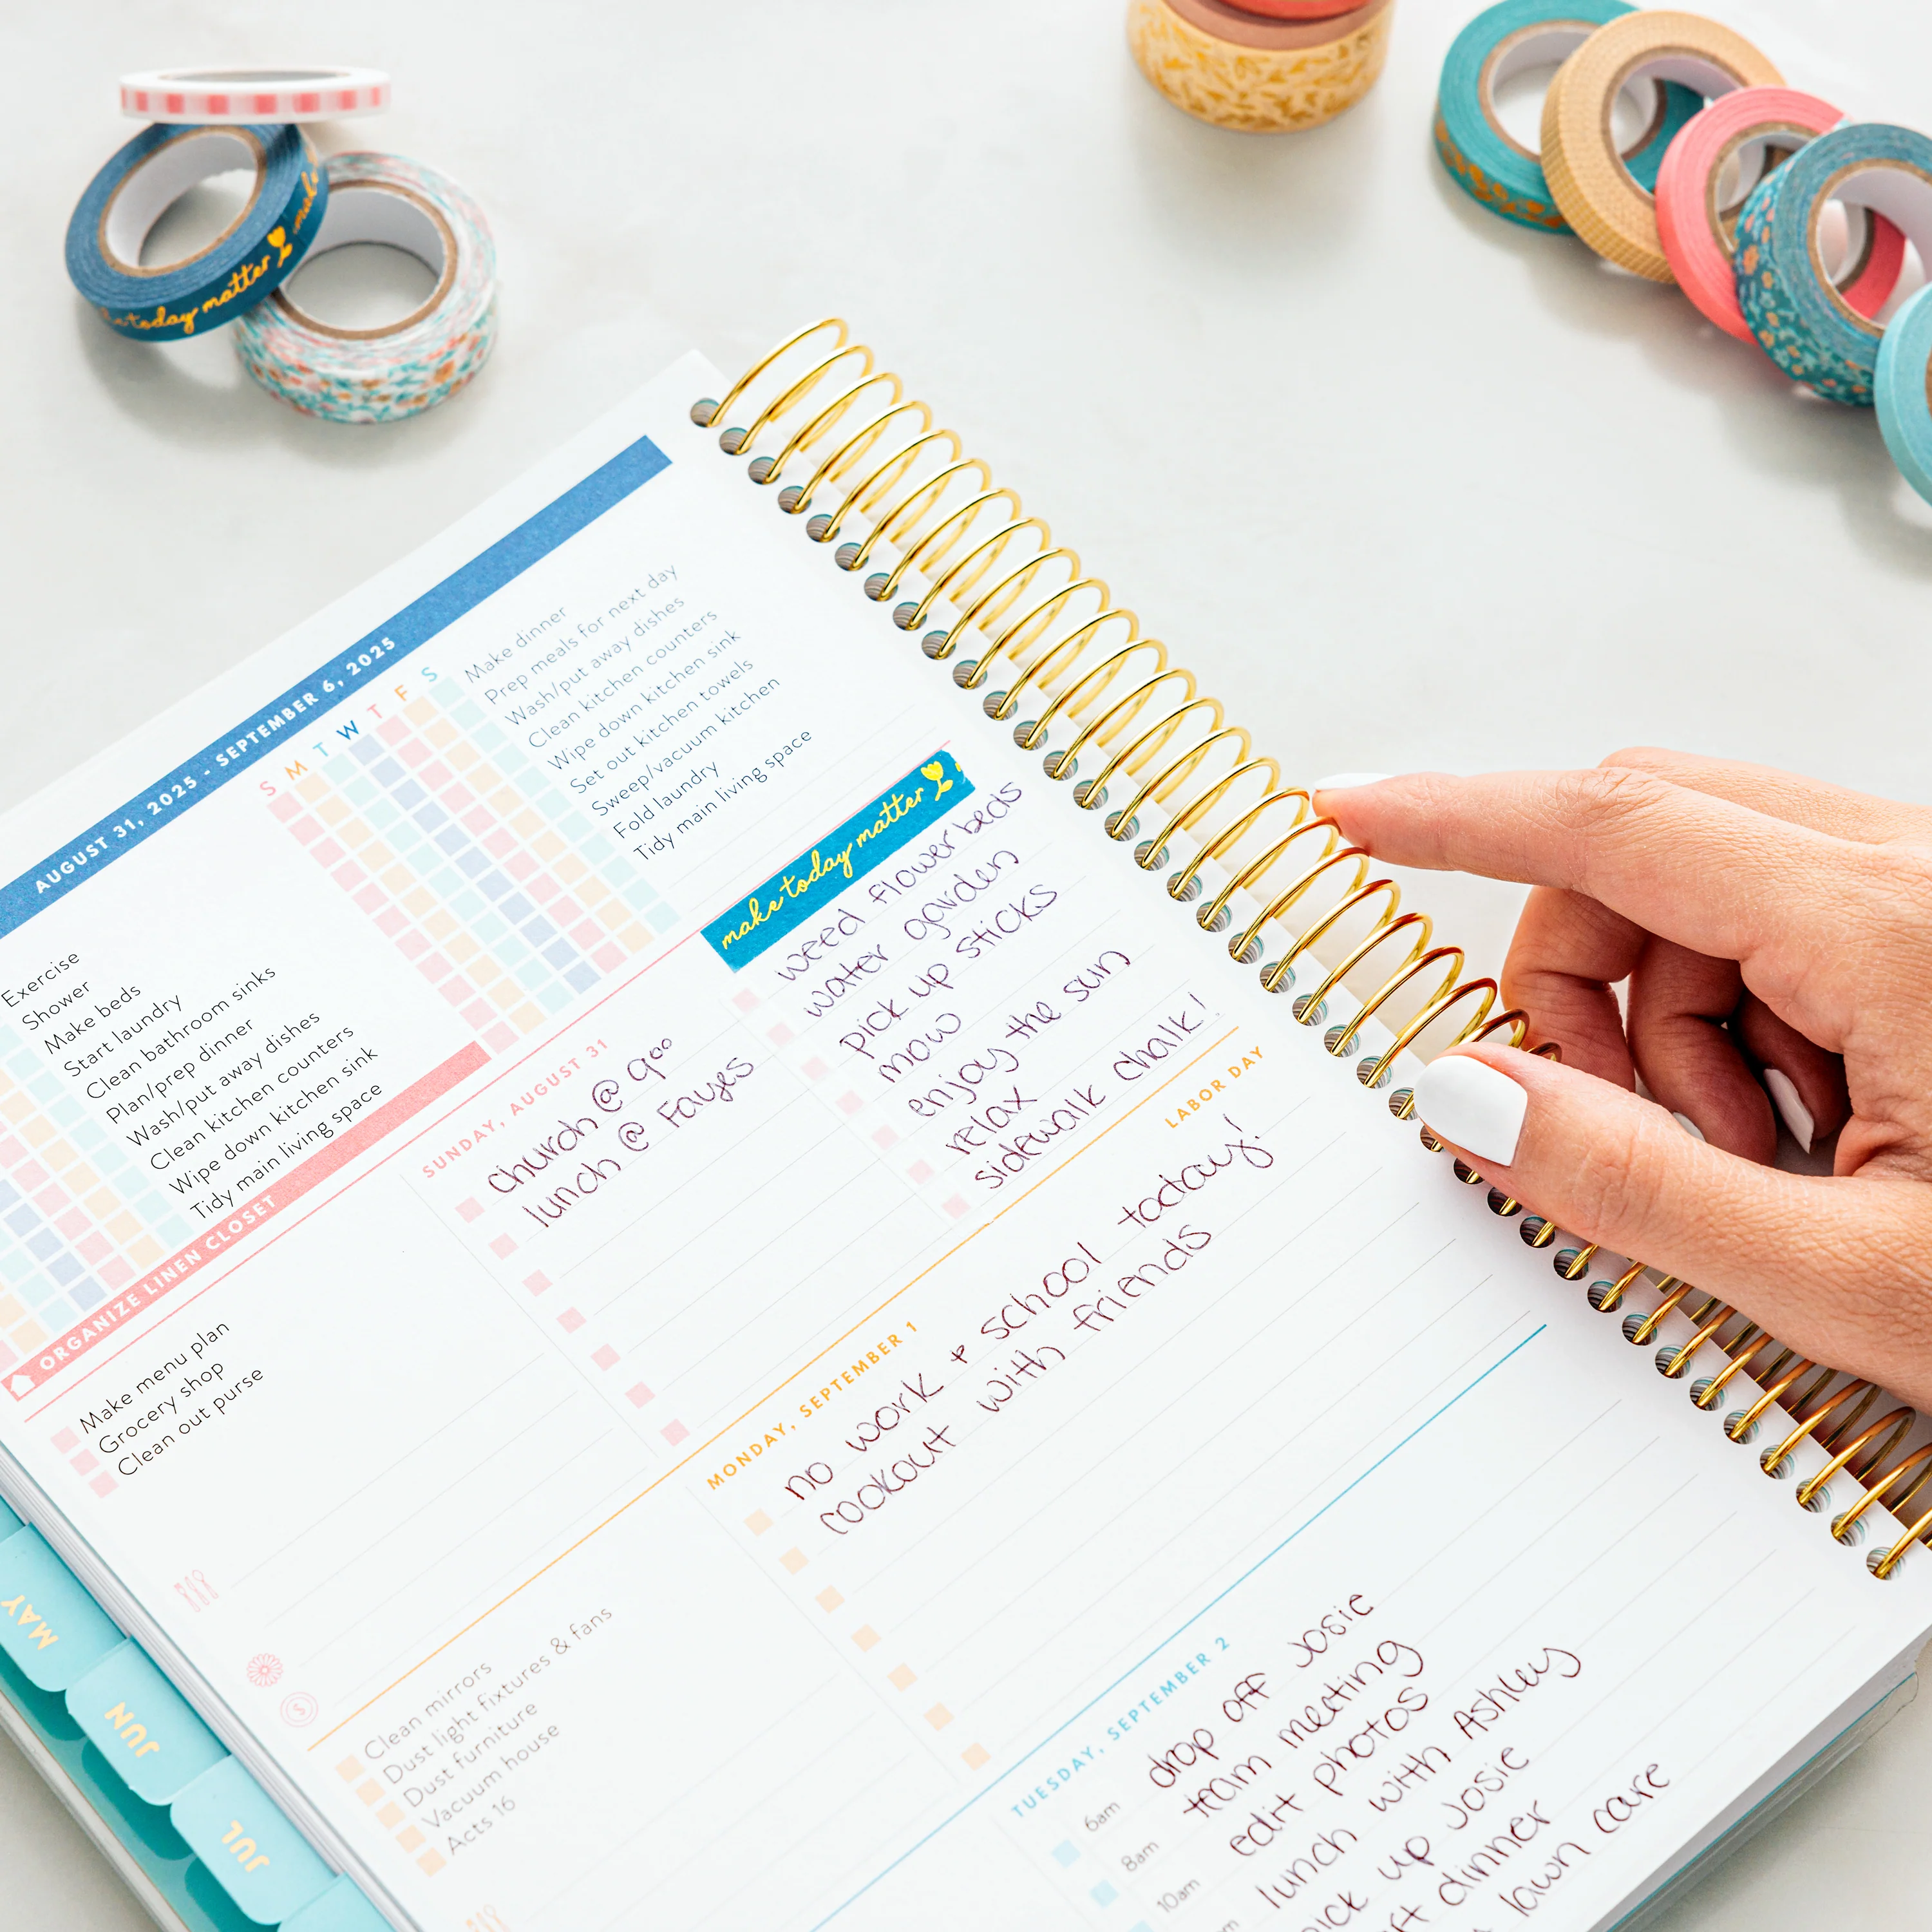 today matter
make
AUGUST 31, 2025 - SEPTEMBER 6, 2025
S M T W T F S
Exercise
Shower
Make beds
Start laundry
Clean bathroom sinks
Plan/prep dinner
Wash/put away dishes
Clean kitchen counters
Wipe down kitchen sink
Tidy main living space
Make dinner
Prep meals for next day
Wash/put away dishes
Clean kitchen counters
Wipe down kitchen sink
Set out kitchen towels
Sweep/vacuum kitchen
Fold laundry
Tidy main living space
ORGANIZE LINEN CLOSET
Make menu plan
Grocery shop
Clean out purse
SUNDAY, AUGUST 31
church @ 9⁰⁰
lunch @ Fayes
make today matter
weed flowerbeds
water garden
pick up sticks
mow
enjoy the sun
relax
sidewalk chalk!
Clean mirrors
Dust light fixtures & fans
Dust furniture
Vacuum house
Acts 16
MONDAY, SEPTEMBER 1
LABOR DAY
no work + school today!
cookout with friends
TUESDAY, SEPTEMBER 2
6am drop off Josie
8am team meeting
10am edit photos
lunch with Ashley
pick up Josie
dinner
lawn care
MAY
JUN
JUL